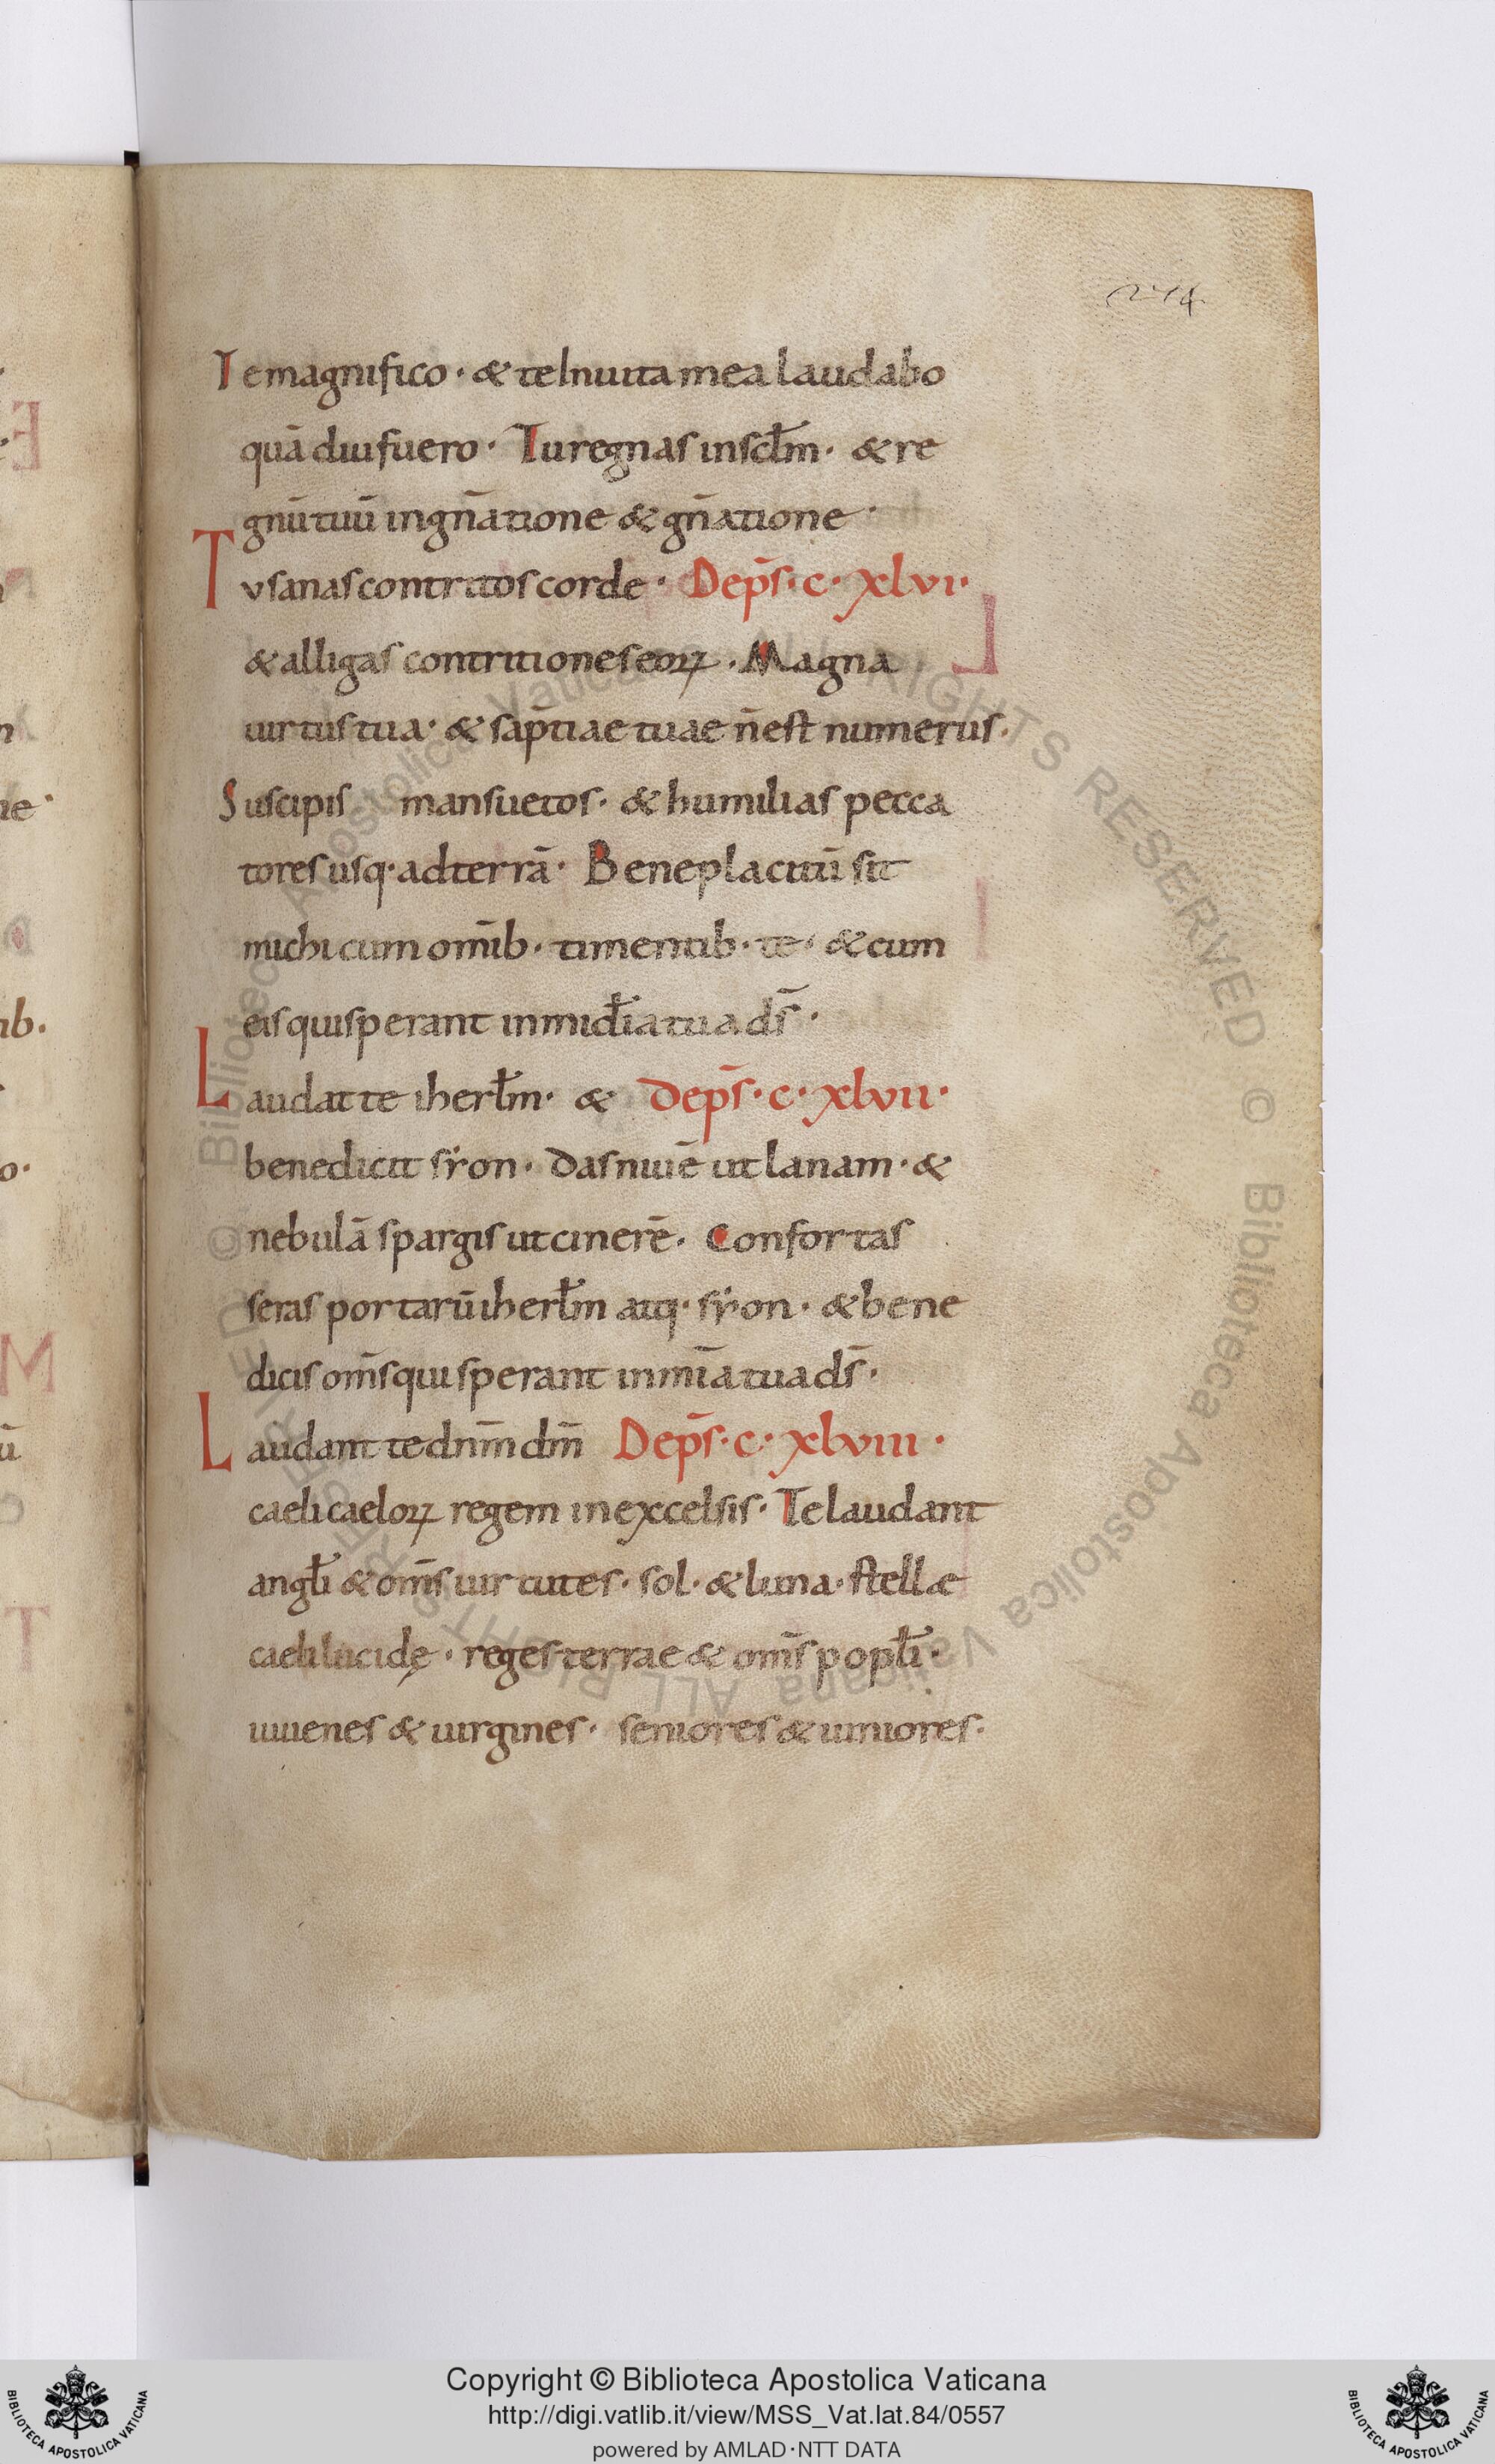 274
Te magnifico · & te Inuita mea laudabo
quā diu fuero · Tu regnas in sc̄lm · & re
gnū tuū in gn̄atione & gn̄atione ·
Tu sanas contritos corde · De ps̄ · c · xlvi ·
& alligas contritiones eoꝝ · Magna
uirtus tua · & sap̄tiae tuae n̄ est numerus ·
Suscipis mansuetos · & humilias pecca
tores usq · ad terrā · Beneplacitū sit
michi cum om̄ib · timentib · te · & cum
eis qui sperant in mid̄ia tua ds̄ ·
Laudat te iherl̄m · & De ps̄ · c · xlvii ·
benedicit syon · Das niuē ut lanam · &
nebulā spargis ut cinerē · Confortas
seras portarū iherl̄m atq · syon · & bene
dicis om̄s qui sperant in mīa tua ds̄ ·
Laudant te dn̄m dm̄ De ps̄ · c · xlviii ·
caeli caeloꝝ regem in excelsis · Te laudant
angl̄i & om̄s uirtutes · sol · & luna · stellæ
caeli lucidę · reges terrae & om̄s popl̄i ·
iuuenes & uirgines · seniores & iuniores ·
© Biblioteca Apostolica Vaticana ALL RIGHTS RESERVED © Biblioteca Apostolica Vaticana ALL RIGHTS RESERVED
Copyright © Biblioteca Apostolica Vaticana
http://digi.vatlib.it/view/MSS_Vat.lat.84/0557
powered by AMLAD·NTT DATA
BIBLIOTECA APOSTOLICA VATICANA
BIBLIOTECA APOSTOLICA VATICANA